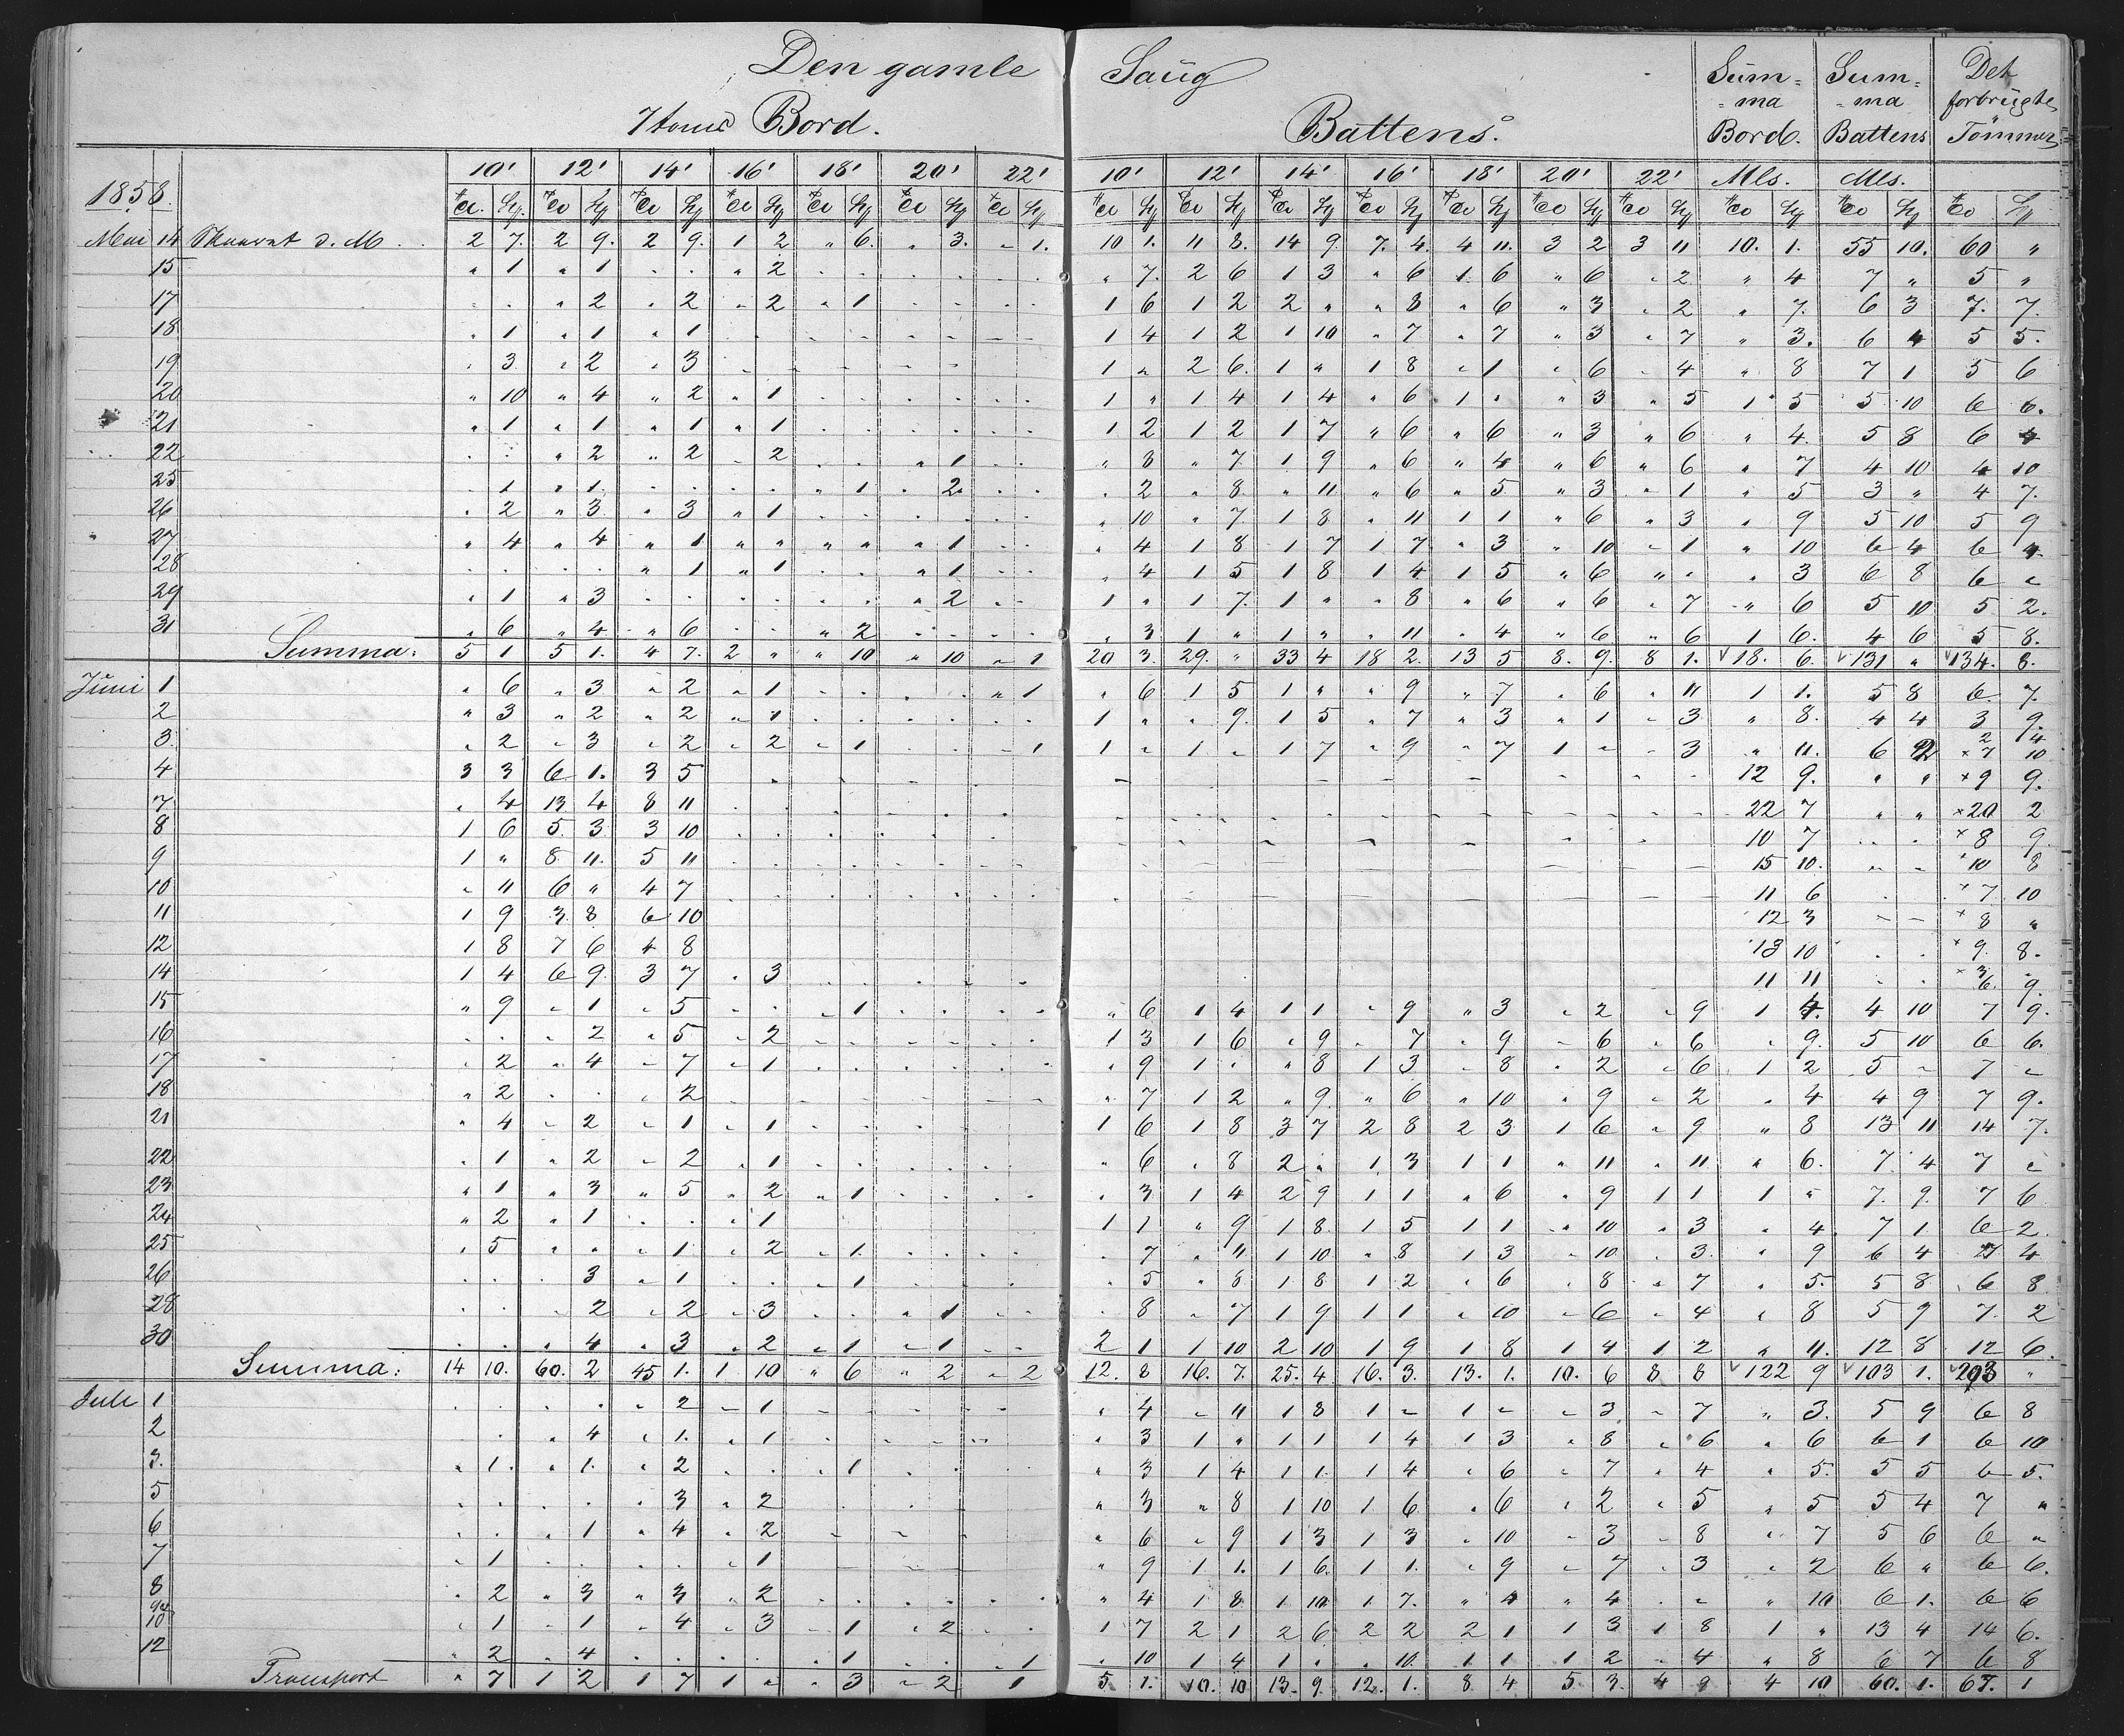 Den gamle Saug
7 toms Bord. Battens. Sum- -ma Bord. Sum- -ma Battens Det forbrugte Tömmer
10' 12' 14' 16' 18' 20' 22' 10' 12' 14' 16' 18' 20' 22' Mls. Mls.
1858.
Mai 14 Skaaret d. M. 2 7. 2 9. 2 9. 1 2 „ 6. „ 3. „ 1. 10 1. 11 8. 14 9. 7. 4. 4 11. 3 2 3 11 10. 1. 55 10. 60 „
15 „ 1 „ 1 . . „ 2 . . . . . . „ 7. 2 6 1 3 „ 6 1. 6 „ 6 „ 2 „ 4 7 „ 5 „
17 . . „ 2 „ 2 „ 2 „ 1 . . . . 1 6 1 2 2 „ „ 8 „ 6 „ 3 „ 2 „ 7. 6 3 7. 7.
18 „ 1 „ 1 „ 1 . . . . . . . . 1 4 1 2 1 10 „ 7 „ 7 „ 3 „ 7 „ 3. 6 4 5 5.
19 „ 3 „ 2 „ 3 . . . . . . . . 1 „ 2 6. 1 „ 1 8 „ 1 „ 6 „ 4 „ 8 7 1 5 6
20 „ 10 „ 4 „ 2 „ 1 . . . . . . 1 „ 1 4 1 4 „ 6 1 „ „ 3 „ 5 1 5 5 10 6 6.
21 „ 1 „ 1 „ 1 „ 1 . . . . . . 1 2 1 2 1 7 „ 6 „ 6 „ 3 „ 6 „ 4. 5 8 6 4
22 . . „ 2 „ 2 „ 2 . . „ 1 . . „ 8 „ 7. 1 9 „ 6 „ 4 „ 6 „ 6 „ 7 4 10 4 10
25 „ 1 „ 1. . . . . „ 1 „ 2 . . „ 2 „ 8 „ 11 „ 6 „ 5 „ 3 „ 1 „ 5 3 „ 4 7.
26 „ 2 „ 3 „ 3 „ 1 . . . . . . „ 10 „ 7. 1 8 „ 11 1 1 „ 6 „ 3 „ 9 5 10 5 9
27 „ 4 „ 4 „ 1 „ „ „ „ „ 1 . . „ 4 1 8 1 7 1 7. „ 3 „ 10 „ 1 „ 10 6 4 6 4
28 . . . . „ 1 „ 1 . . „ 1 . . „ 4 1 5 1 8 1 4 1 5 „ 6 „ „ „ 3 6 8 6 „
29 „ 1 „ 3 . . . . . . „ 2 . . 1 „ 1 7. 1 „ „ 8 „ 6 „ 6 „ 7 „ 6 5 10 5 2.
31 „ 6 „ 4 „ 6 . . „ 2 . . . . „ 3 1 „ 1 „ „ 11 „ 4 „ 6 „ 6 1 6. 4 6 5 8.
Summa: 5 1 5 1. 4 7. 2 „ „ 10 „ 10 „ 1 20 3. 29. „ 33 4 18 2. 13 5 8. 9. 8 1. 18. 6. 131 „ 134. 8.
Juni 1 „ 6 „ 3 „ 2 „ 1 . . . . „ 1 „ 6 1 5 1 „ „ 9 „ 7 „ 6 „ 11 1 1. 5 8 6 7.
2 „ 3 „ 2 „ 2 „ 1 . . . . . . 1 „ „ 9. 1 5 „ 7 „ 3 „ 1 „ 3 „ 8. 4 4 3 9.
3. „ 2 „ 3 „ 2 „ 2 „ 1 . . „ 1 1 „ 1 „ 1 7 „ 9 „ 7 1 „ „ 3 „ 11. 6 2 2 4 × 7 10
4 3 3 6 1. 3 5 12 9. „ „ × 9 9.
7 „ 4 13 4 8 11 22 7 „ „ × 20 2
8 1 6 5 3 3 10 10 7 . . × 8 9.
9 1 „ 8 11. 5 11 15 10. „ „ × 10 8
10 „ 11 6 „ 4 7 11 6 . . × 7 10
11 1 9 3 8 6 10 12 3 - - × 8 „
12 1 8 7 6 4 8 13 10 . . × 9. 8.
14 1 4 6 9. 3 7 . 3 11 11 . . × 3 . 6. 9.
15 „ 9 „ 1 „ 5 . . „ 1 . . . . „ 6 1 4 1 1 „ 9 „ 3 „ 2 „ 9 1 4. 4 10 7 9.
16 . . „ 2 „ 5 „ 2 . . . . . . 1 3 1 6 „ 9 „ 7 „ 9 „ 6 „ 6 „ 9. 5 10 6 6.
17 „ 2 „ 4 „ 7 „ 1 . . . . . . „ 9 1 „ „ 8 1 3 „ 8 „ 2 „ 6 1 2 5 „ 7 „
18 „ 2 . . „ 2 . . . . . . . . „ 7 1 2 „ 9. „ 6 „ 10 „ 9 „ 2 „ 4 4 9 7 9.
21 „ 4 „ 2 „ 1 „ 1 . . . . . . 1 6 1 8 3 7 2 8 2 3 1 6 „ 9 „ 8 13 11 14 7.
22 „ 1 „ 2 „ 2 „ 1 . . . . . . „ 6 „ 8 2 „ 1 3 1 1 „ 11 „ 11 „ 6. 7. 4 7 „
23 „ 1 „ 3 „ 5 „ 2 „ 1 . . . . „ 3 1 4 2 9 1 1 „ 6 „ 9 1 1 1 „ 7. 9. 7 6
24 „ 2 „ 1 . . „ 1 . . . . . . 1 1 „ 9 1 8. 1 5 1 1 „ 10 „ 3 „ 4 7 1 6 2.
25 „ 5 „ „ „ 1 „ 2 „ 1 . . . . „ 7 „ 11 1 10 „ 8 1 3 „ 10 „ 3. „ 9 6 4 7 4
26 . . . 3 „ 1 . . „ 1 . . . . „ 5 „ 8 1 8 1 2 „ 6 „ 8 „ 7 „ 5. 5 8 6 8
28 . . „ 2 „ 2 „ 3 . . „ 1 . . „ 8 „ 7 1 9 1 1 „ 10 „ 6 „ 4 „ 8 5 9 7. 2
30 . . „ 4 „ 3 „ 2 „ 1 „ 1 . . 2 1 1 10 2 10 1 9 1 8 1 4 1 2 „ 11. 12 8 12 6.
Summa: 14 10. 60. 2 45 1. 1 10 „ 6 „ 2 „ 2 12. 8 16. 7. 25. 4. 16. 3. 13. 1. 10. 6 8 8 122 9 103 1. 203 „
Juli 1 . . . . „ 2 „ 1 . . . . . . „ 4 „ 11 1 8 1 „ 1 „ „ 3 „ 7 „ 3. 5 9 6 8
2 . . „ 4 „ 1. „ 1 . . . . . . „ 3 1 „ 1 1 1 4 1 3 „ 8 „ 6 „ 6 6 1 6 10
3. „ 1. „ 1. „ 2 . . „ 1 . . . . „ 3 1 4 1 1. 1 4 „ 6 „ 7 „ 4 „ 5. 5 5 6 5.
5 . . . . „ 3 „ 2 . . . . „ 3 „ 8 1 10 1. 6 „ 6 „ 2 „ 5 „ 5 5 4 7 „
6 . . „ 1 „ 4 „ 2 . . . . „ 6 „ 9 1 3 1 3 „ 10 „ 3 „ 8 „ 7 5 6 6 „
7 „ 1 . . . . „ 1 . . . . „ 9 1 1. 1 6. 1 1. „ 9 „ 7 „ 3 „ 2 6 „ 6 6.
8 „ 2 „ 3 „ 3 „ 2 . . . . . . „ 4 1 8 1 10 1 7. „ 4 „ 4 „ „ „ 10 6 1. 6 6
9 & 10 „ 1 „ 1 „ 4 „ 3 „ 1 „ 2 . . 1 7 2 1 2 6 2 2 2 1 1 3 1 8 1 „ 13 4 14 6.
12 „ 2 „ 4 . . . . „ 1 . . „ 1 „ 10 1 4 1 „ „ 10. 1 1 1 2 „ 4 „ 8 6 7 6 8
Transport „ 7 1 2 1 7 1 „ „ 3 „ 2 1 5 1. 10. 10 13. 9. 12. 1. 8 4 5 3. 4 9 4 10 60. 1. 67. 1